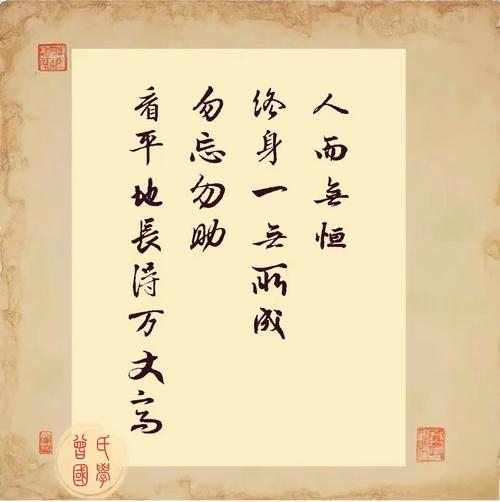 人而無恒
終身一无所成
勿忘勿助
看平地長得万丈高
曾國
氏學